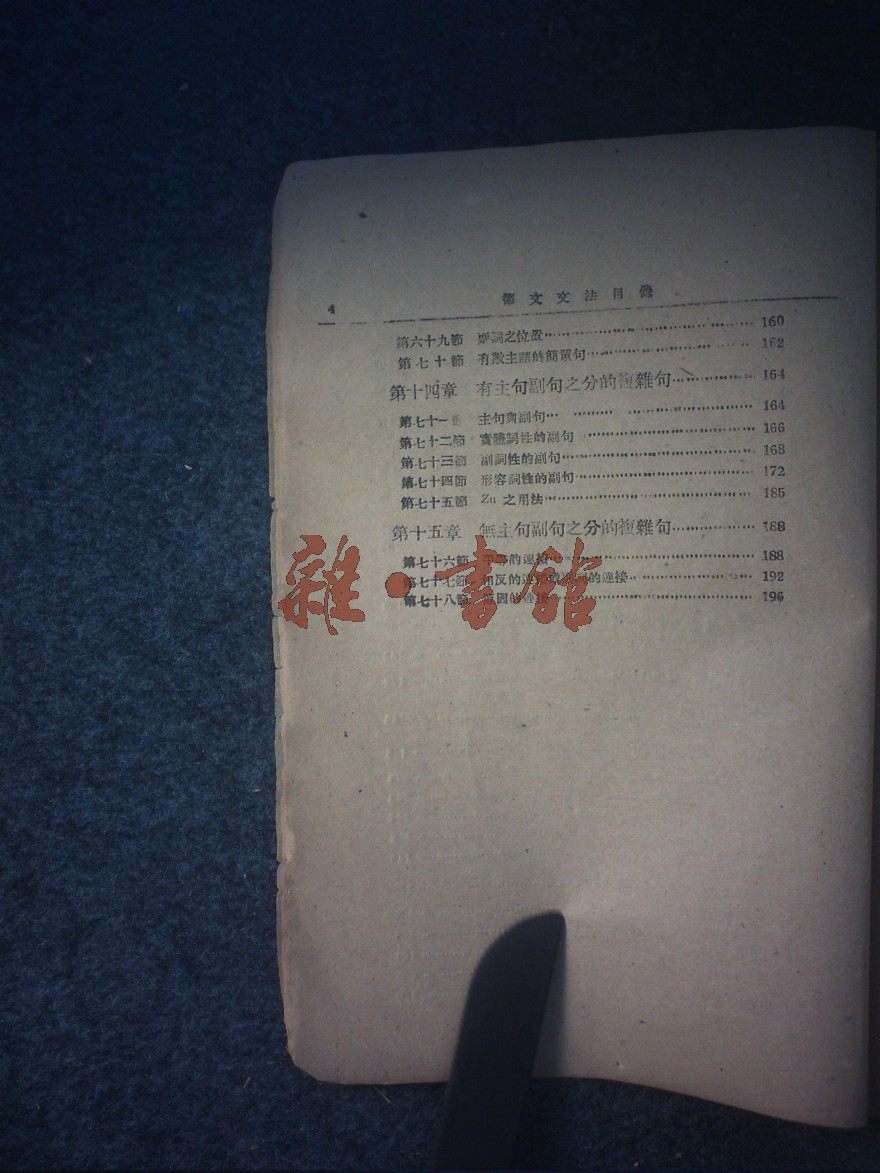 4 德文文法目錄
第六十九節 動詞之位置 160
第七十節 有數主語的簡單句 162
第十四章 有主句副句之分的複雜句 164
第七十一 主句與副句 164
第七十二節 實體詞性的副句 166
第七十三節 副詞性的副句 168
第七十四節 形容詞性的副句 172
第七十五節 Zu 之用法 185
第十五章 無主句副句之分的複雜句 188
第七十六節 的連接 188
第七十七節 相反的連 的連接 192
第七十八節 的連接 196
雜·書館